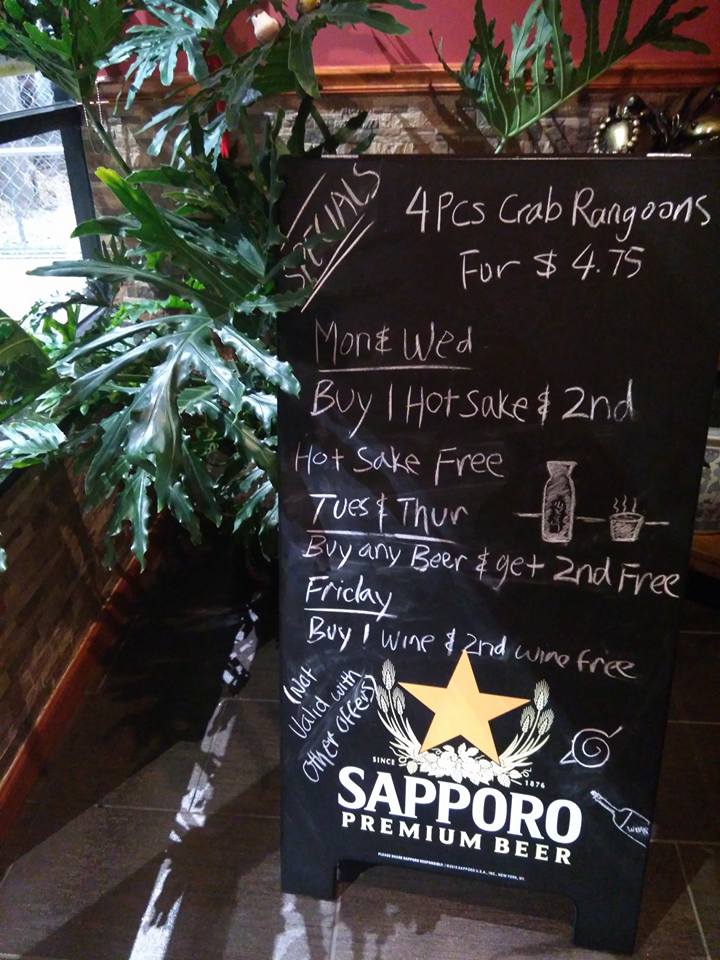 SPECIALS
4 Pcs Crab Rangoons
For $ 4.75
Mon & Wed
Buy 1 Hot Sake & 2nd
Hot Sake Free
Tues & Thur
Buy any Beer & get 2nd Free
Friday
Buy 1 wine & 2nd wine free
(Not
Valid with
other offers)
SINCE 1876
SAPPORO
PREMIUM BEER
PLEASE SHARE SAPPORO RESPONSIBLY